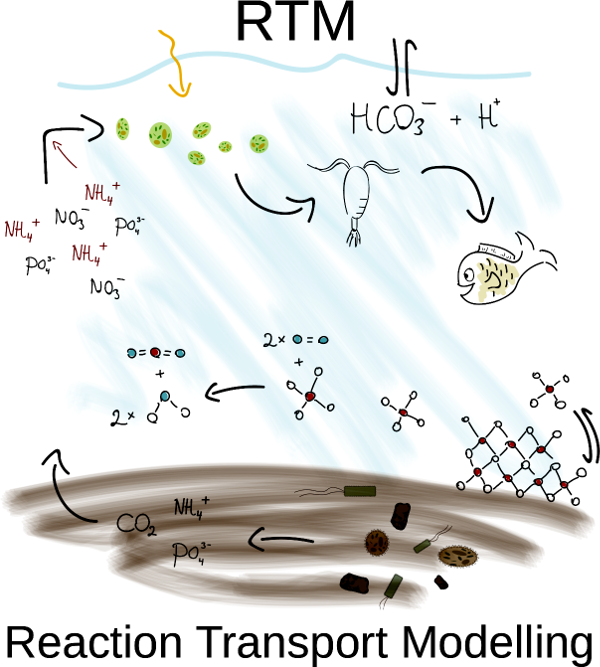 RTM
HCO₃⁻ + H⁺
NH₄⁺
NH₄⁺ NO₃⁻ PO₄³⁻
PO₄³⁻ NH₄⁺
NO₃⁻
2× =
= =
+
+
2×
CO₂ NH₄⁺
PO₄³⁻
Reaction Transport Modelling